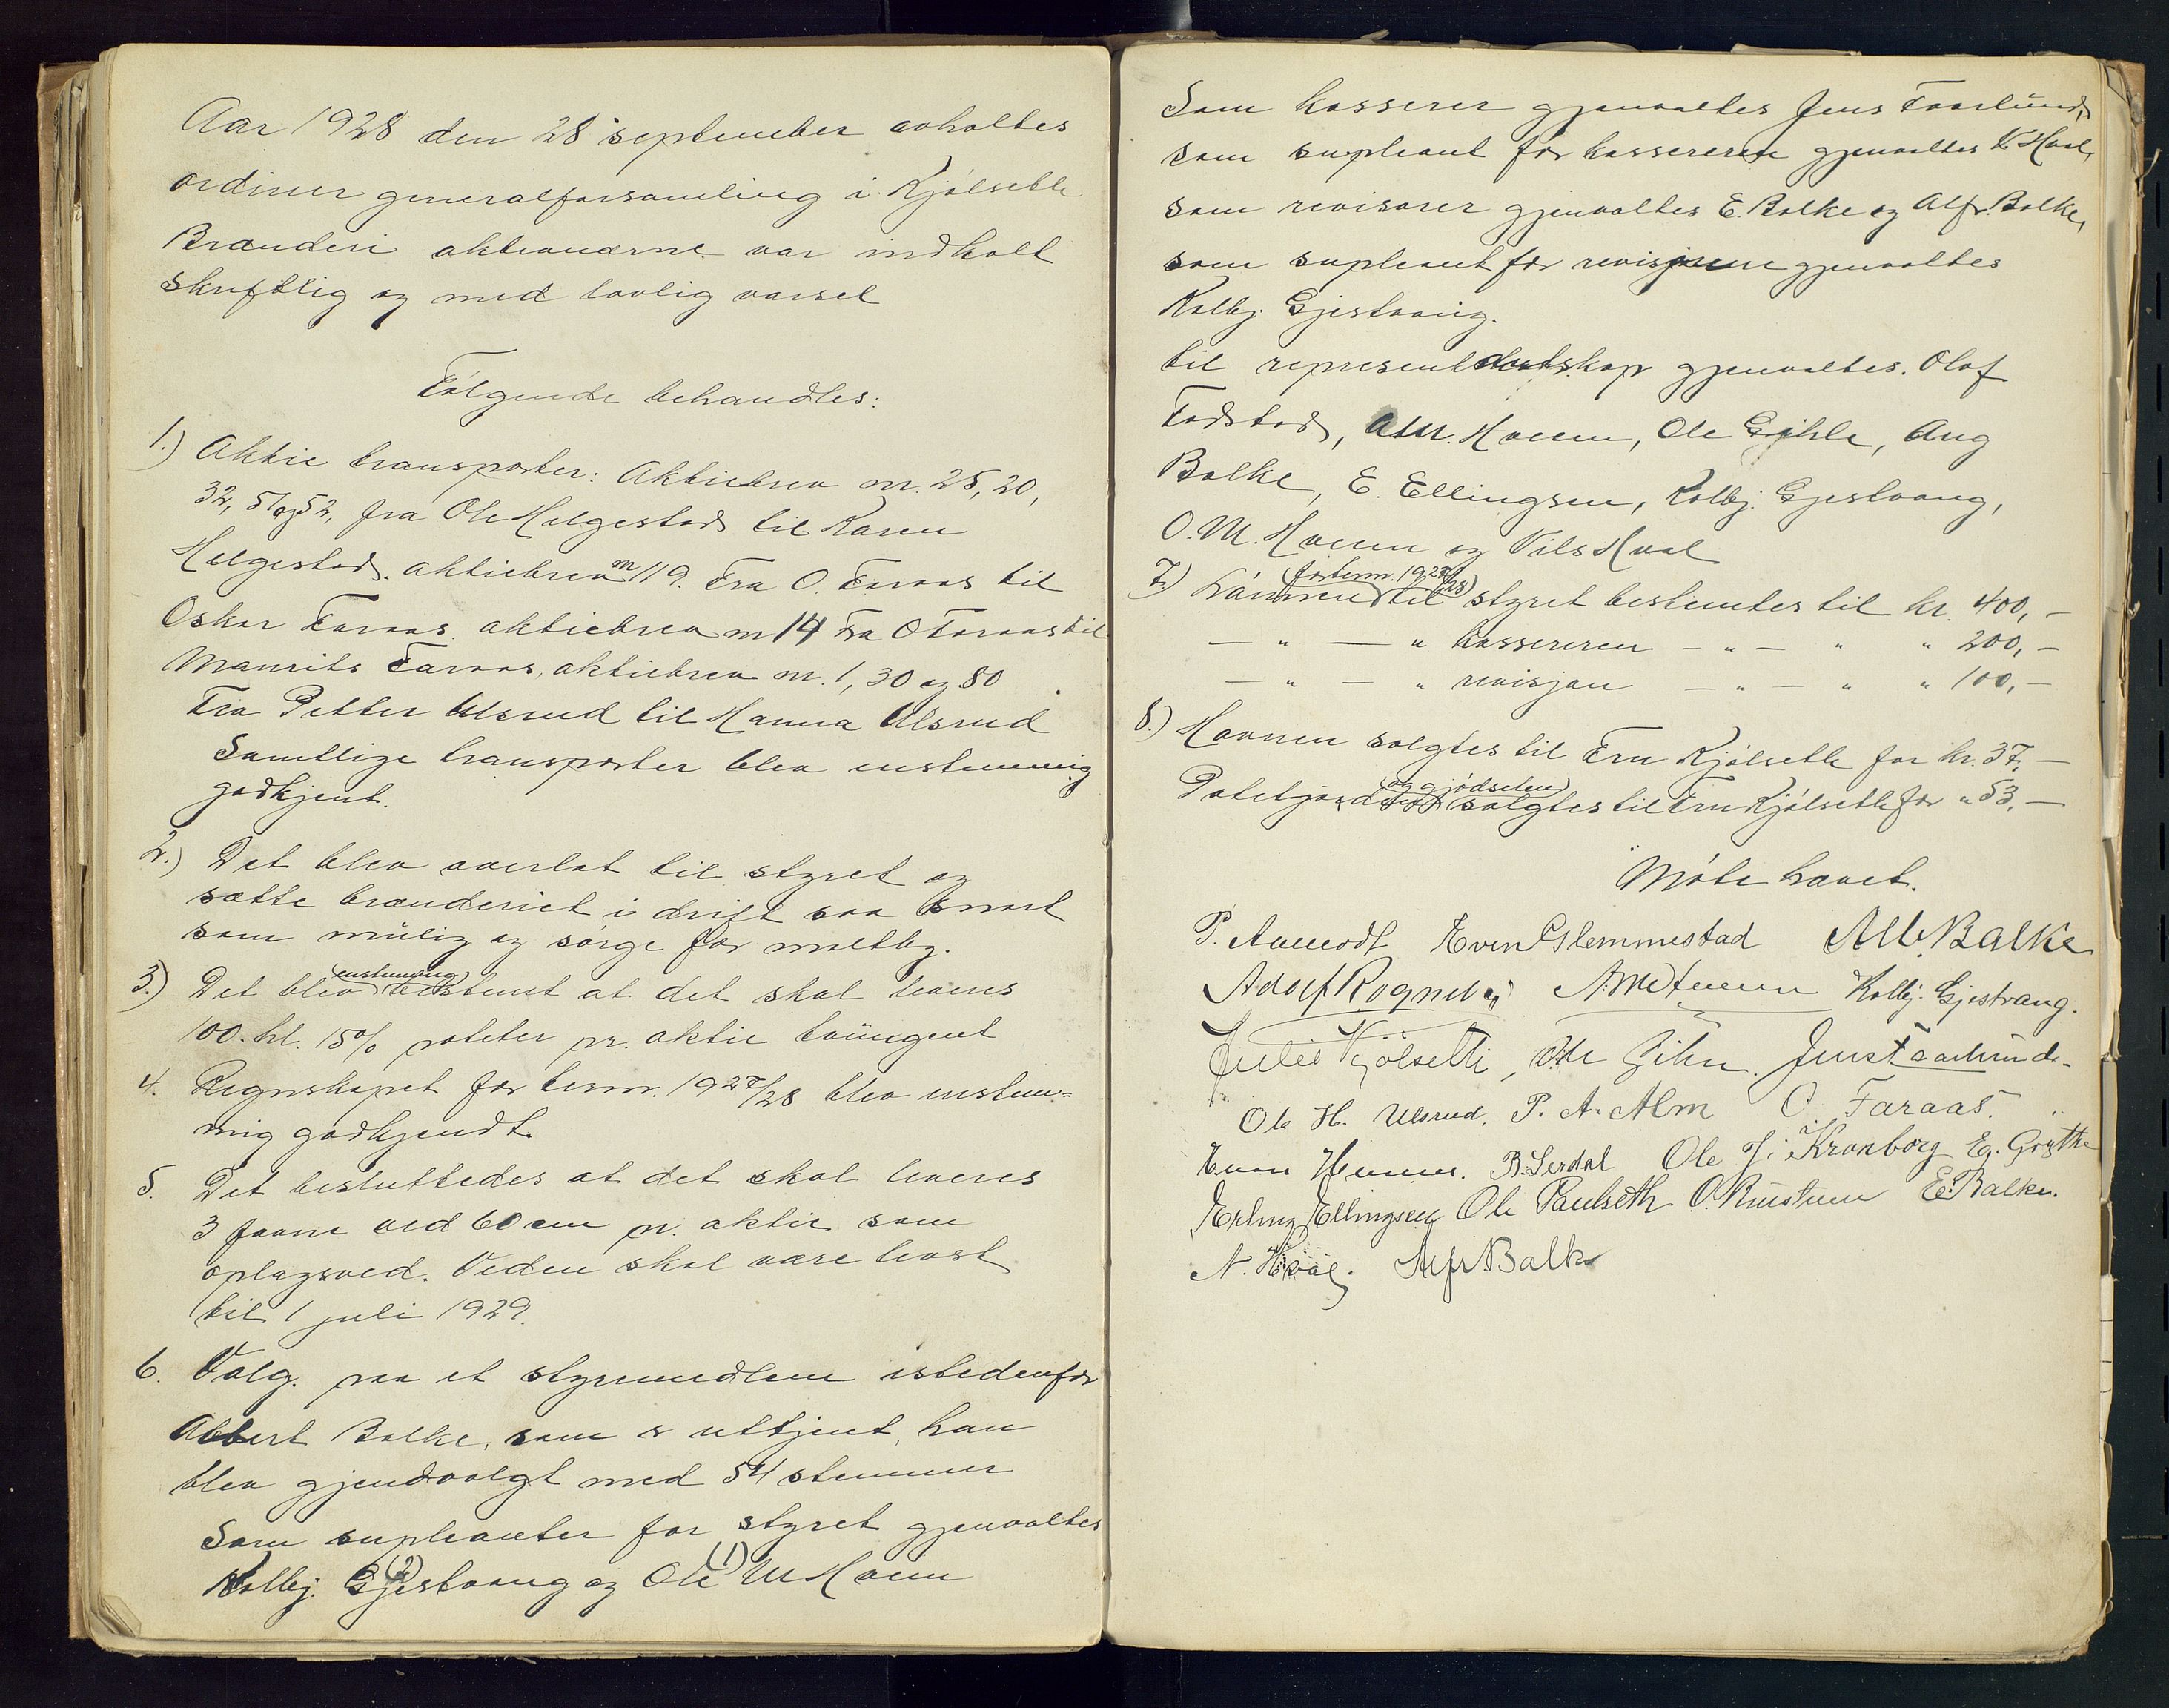 Aar 1928 den 28 september avholtes
ordinær generalforsamling i Kjølsetle
Brænderi aktionærne var indkalt
skriftlig og med lovlig varsel
Følgende behandles:
1.) Aktie transporter: Aktiebrev nr. 25, 20,
32, 51 og 52, fra Ole Helgestad til Karen
Helgestad. aktiebrev nr 119. Fra O. Faraas til
Oskar Faraas. aktiebrev nr 14 Fra O Faraas til
Maurits Faraas, aktiebrev nr. 1, 30 og 80
Fra Petter Ulsrud til Hanna Ulsrud
Samtlige transporter blev enstemmig
godkjent.
2.) Det blev overlat til styret og
sætte brænderiet i drift saa snart
som mülig og sørge for maltbyg.
3.) Det blev enstemmig bestemt at det skal leveres
100. hl. 15% poteter pr. aktie tvüngent
4. Regnskapet for term. 1927/28 blev enstem=
mig godkjendt.
5. Det besluttedes at det skal leveres
3 favne ved 60 cm pr. aktie som
oplagsved. Veden skal være levert
til 1 juli 1929.
6. Valg. paa et styremedlem istedenfor
Albert Balke, som er uttjent, han
blev gjendvalgt med 54 stemmer
Som supleanter for styret gjenvaltes
Kolbj. Gjestvang (2) og Ole (1) M Hveem
Som kasserer gjenvaltes Jens Faarlund,
som supleant for kassereren gjenvaltes N. Hval,
som revisorer gjenvaltes E. Balke og Alfr. Balke,
som supleant for revisjonen gjenvaltes
Kolbj. Gjestvang.
til representantskap gjenvaltes. Olaf
Fodstad, A.M. Hveem, Ole Gihle, Aug
Balke, E. Ellingsen, Kolbj. Gjestvang,
O. M. Hveem og Nils Hval
7.) Lønnen for term. 1927/28 til styret bestemtes til kr. 400,-
— " — " kassereren — " — " " 200,-
— " — " revisjon — " — " " 100,-
8.) Havnen solgtes til Fru Kjølsetle for kr. 37,—
Potetjorden og gjødselen solgtes til Fru Kjølsetle for " 53,—
Møte hævet.
P. Aamodt Even Slemmestad Alb. Balke
Adolf Rognstad A M Hveem Kolbj. Gjestvang.
Julie Kjølsetli, Ole Gihle. Jens Faarlund.
Ole H. Ulsrud. P. A. Alm O. Faraas.
Even B. Serdal Ole J. Kronborg E. Grythe
Erling Ellingsen Ole Paulseth O. E. Balke.
N. Hval. Alfr. Balke